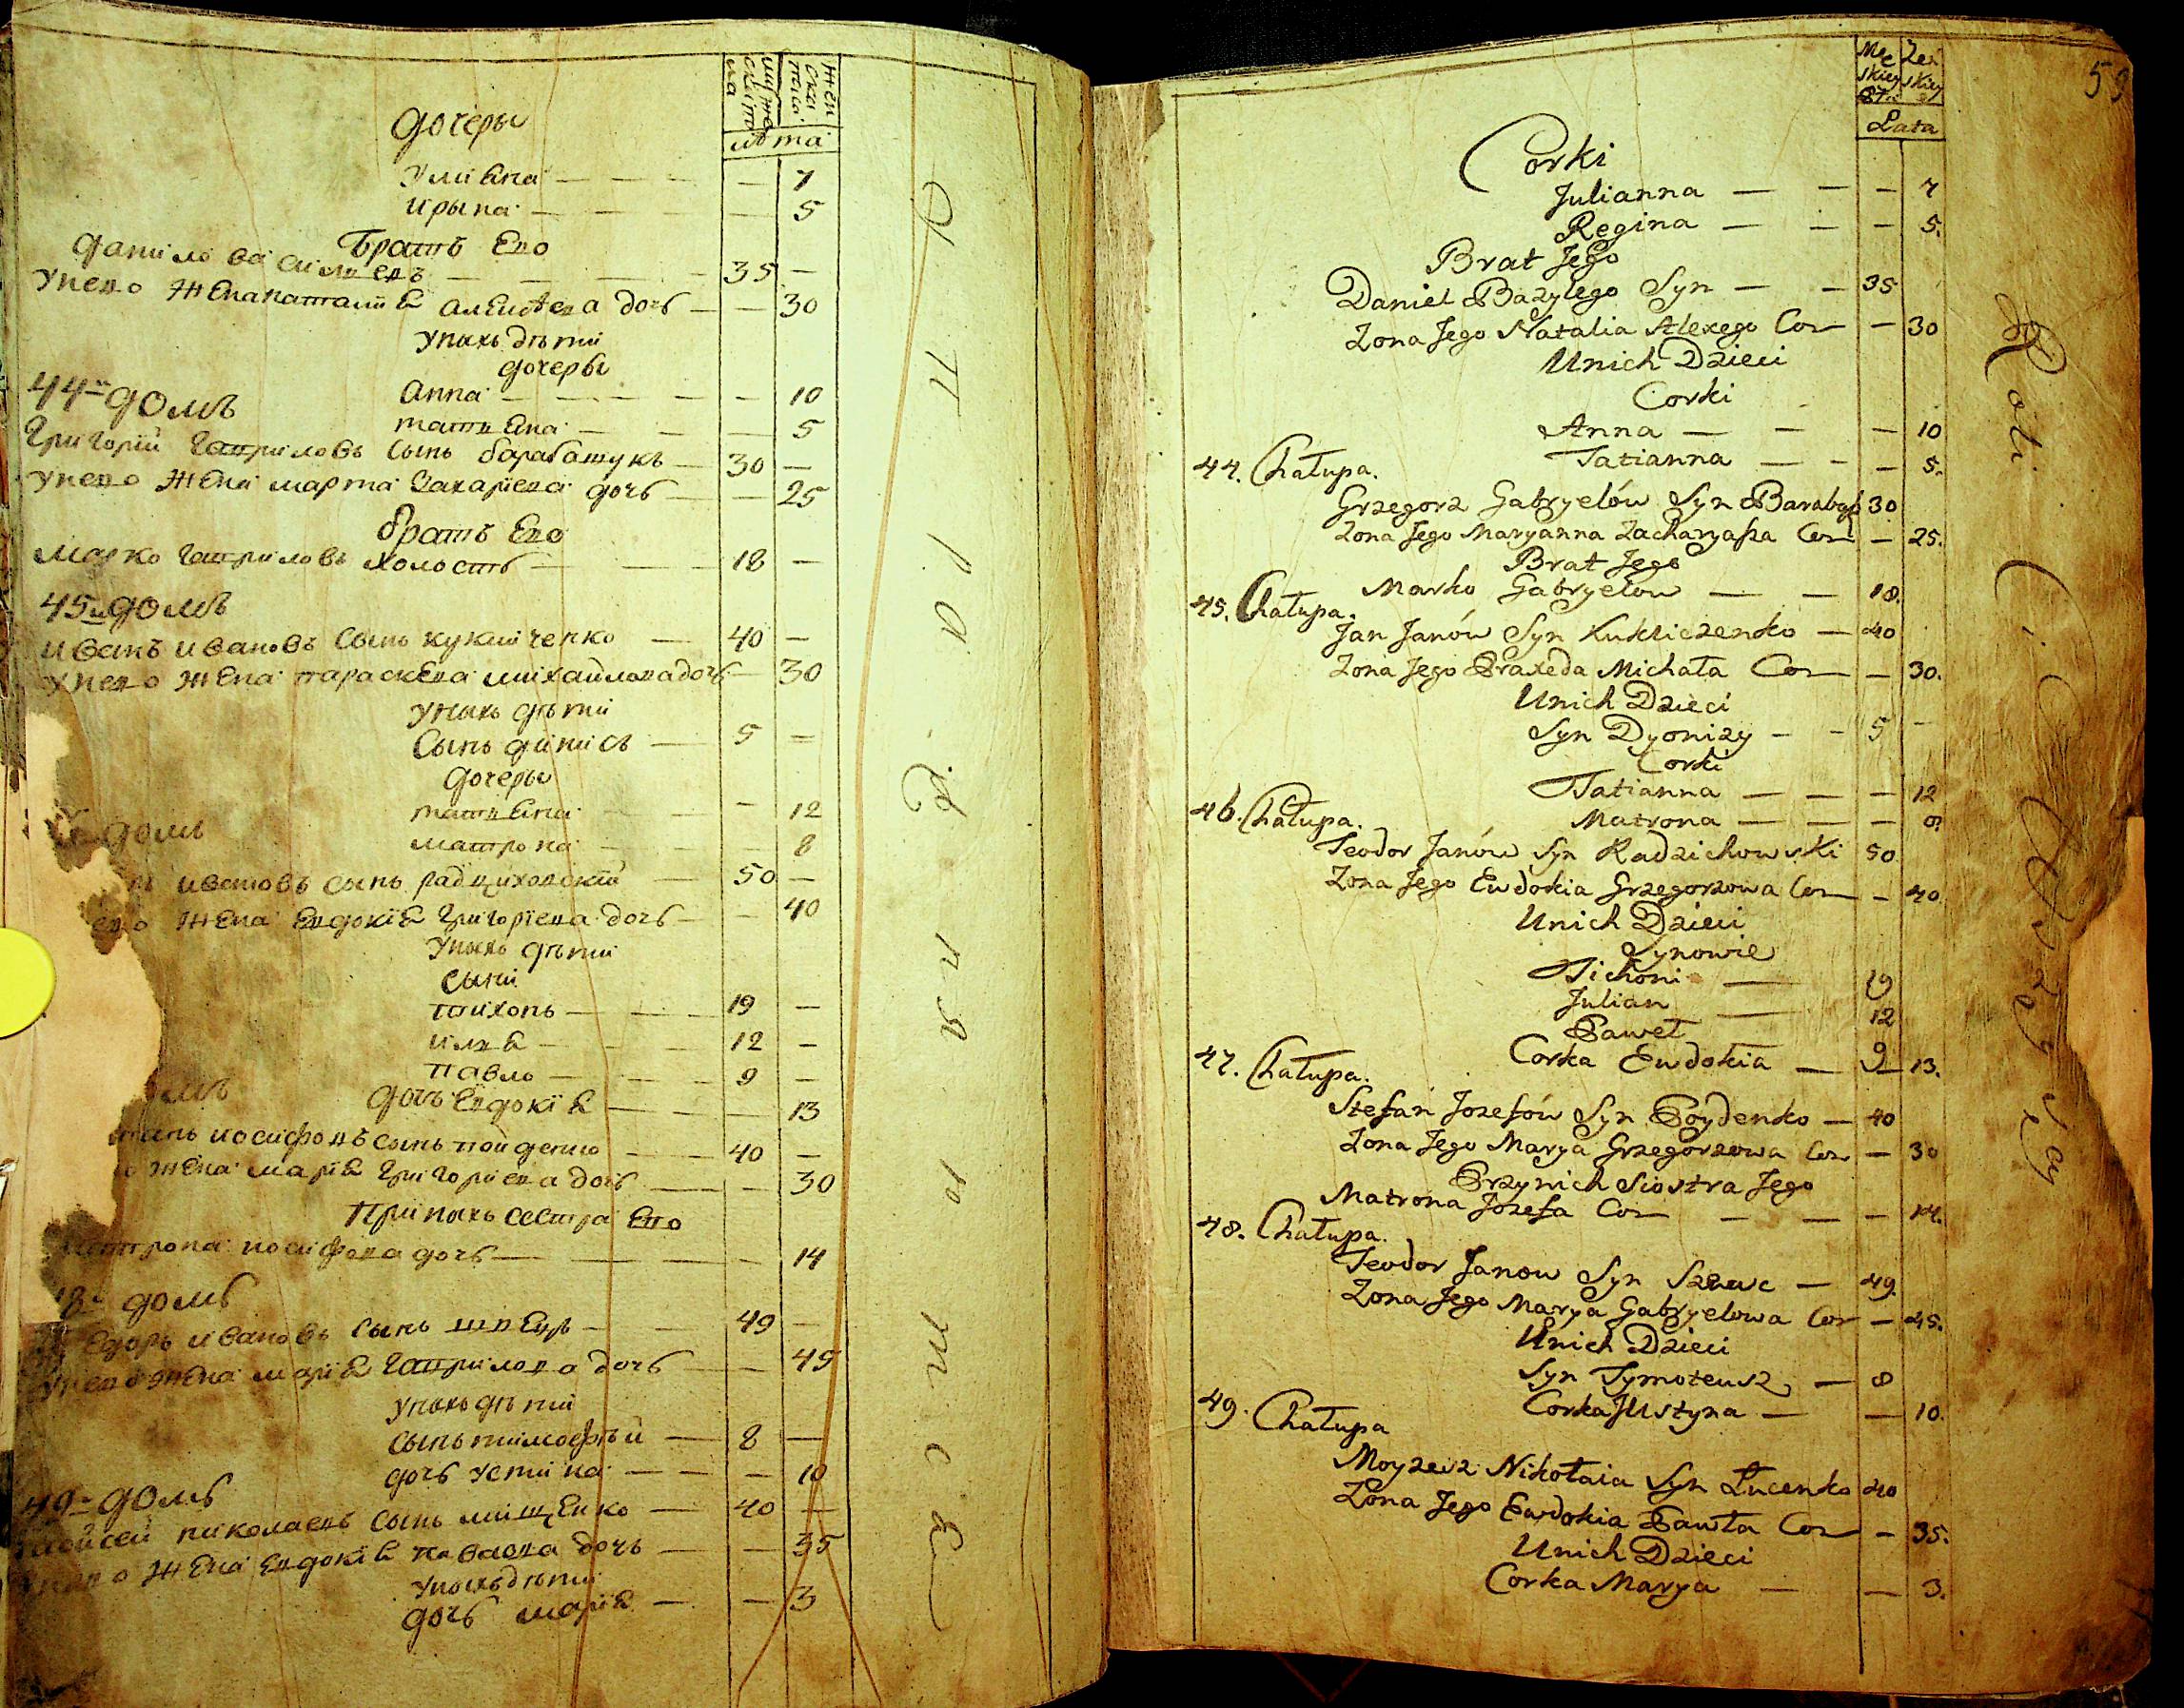 дочеры
лѣта
Улиѣна — — — — 7
Ирына — — — — 5
Братъ Его
Данило Василіевъ — — — 35 —
Унего Жена Наталиѣ Алексѣева дочь — — 30
Уныхъ дѣти
дочеры
Анна — — — — 10
44й домъ
татиѣна — — — 5
Григорій Гаврилов Сынъ барабашукъ — 30 —
Унего Жена марта Захаріева дочь — — 25
братъ Его
Марко Гаврилов холостъ — — 18 —
45й домъ
Иванъ Иванов Сынъ кукличенко — 40 —
Унего Жена параскева михайлова дочь — 30
Уныхъ дѣти
Сынъ динисъ — 5 —
дочеры
татиѣна — — — 12
матрона — — — 8
домъ
Ивановъ сынъ радзиховскій — 50 —
его Жена Евдокіѣ Григоріева дочь — — 40
Уныхъ дѣти
Сыни
тихонъ — — — 19 —
илиѣ — — — 12 —
павло — — — 9 —
дочъ Евдокіѣ — — — 13
иосифовъ сынъ пойденко — — 40 —
Жена маріѣ Григоріева дочь — — 30
При ныхъ сестра Его
иосифова дочь — — — — 14
8й домъ
Ивановъ Сынъ швецъ — — 49 —
Унего Жена маріѣ Гаврилова дочь — — 45
Уныхъ дѣти
Сынъ тимофѣй — 8 —
дочь устина — — — 10
49й домъ
Мойсей николаевъ Сынъ лищенко — 40 —
Жена Евдокіѣ павлова дочь — — 35
Уныхъ дѣти
дочь маріѣ — — 3
59
Męskiey Żeńskiey
Lata
Corki
Julianna — — — 7
Regina — — — 5.
Brat Jego
Daniel Bazylego Syn — — 35
Zona Jego Natalia Alexego Cor — 30
Unich Dzieci
Corki
Anna — — — 10
44. Chałupa.
Tatianna — — — 5.
Grzegorz Gabryelów Syn 30
Zona Jego Maryanna Zacharyasza Cor — 25.
Brat Jego
Marko Gabryelow — — 18.
45. Chałupa.
Jan Janów Syn Kukliczenko — 40
Zona Jego Praxeda Michała Cor — 30.
Unich Dzieci
Syn Dyonizy — — 5 —
Corki
Tatianna — — — 12
46. Chałupa.
Matrona — — — 8.
Teodor Janów Syn Radzichowski 50
Zona Jego Eudokia Grzegorzowa Cor — 40
Unich Dzieci
Synowie
Tichoni — 19
Julian — 12
Paweł
47. Chałupa.
Corka Eudokia — 9 — 13.
Stefan Jozefów Syn Poydenko — 40
Zona Jego Marya Grzegorzowa Cor — 30
Przynich Siostra Jego
Matrona Jozefa Cor — — — 14.
48. Chałupa.
Teodor Janow Syn Szewc — 49.
Zona Jego Marya Gabryelowa Cor — 45.
Unich Dzieci
Syn Tymoteusz — 8
49. Chałupa
Corka Justyna — — 10.
Moyzesz Nikołaia Syn Łucenko 40
Zona Jego Ewdokia Pawła Cor — 35.
Unich Dzieci
Corka Marya — — 3.